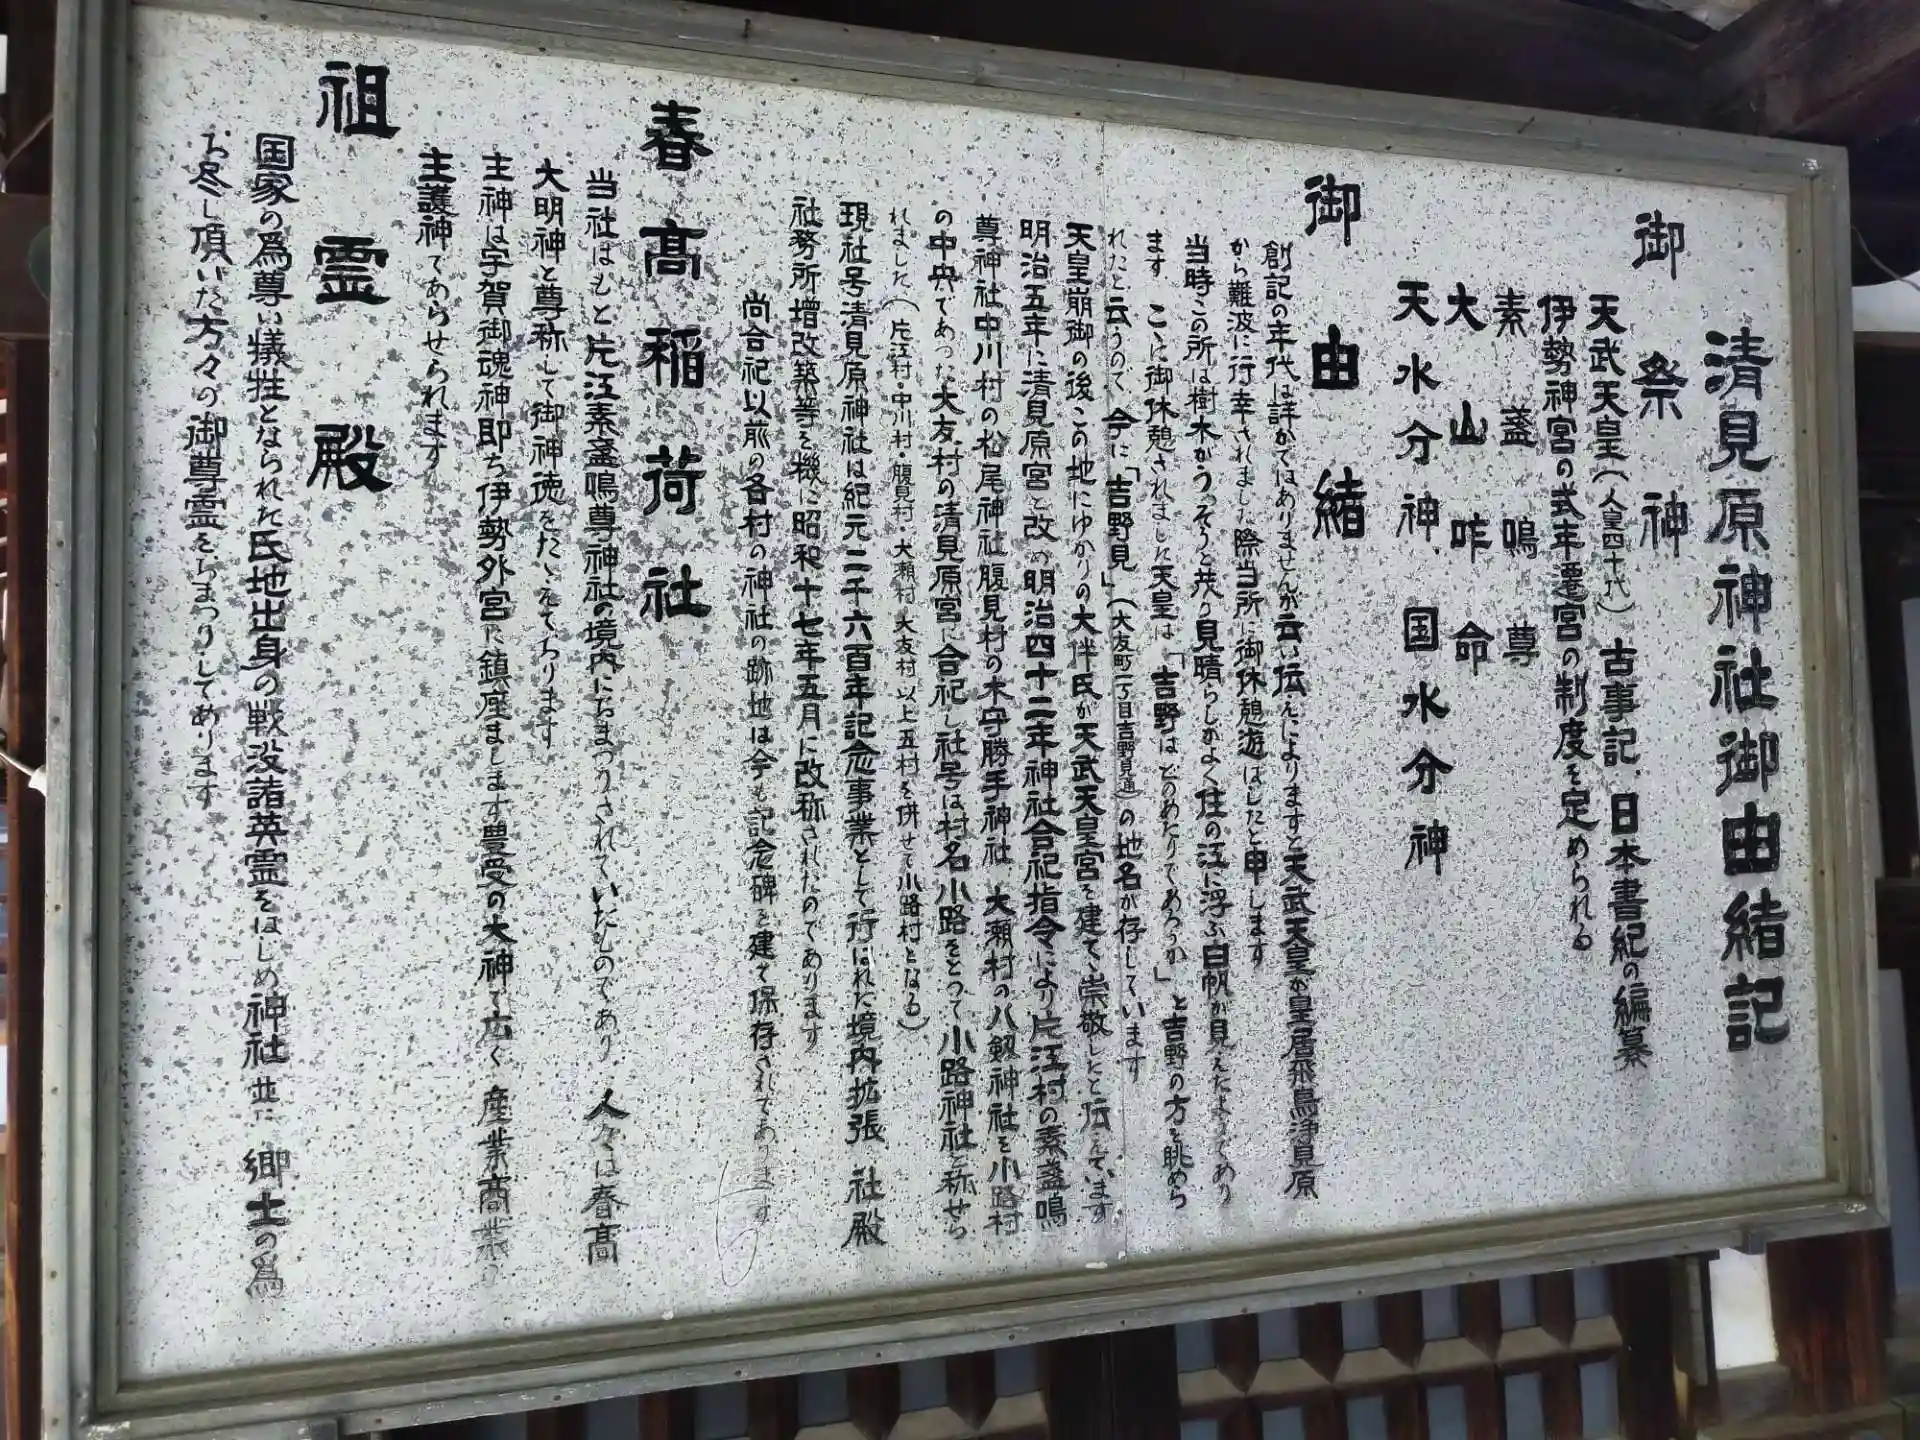 清見原神社御由緒記
御祭神
天武天皇(人皇四十代)古事記、日本書紀の編纂
伊勢神宮の式年遷宮の制度を定められる
素盞鳴尊
大山咋命
天水分神、国水分神
御由緒
創記の年代は詳かではありませんが云い伝えによりますと天武天皇が皇居飛鳥浄見原
から難波に行幸されました際当所に御休憩遊ばしたと申します
当時この所は樹木がうっそうと共り見晴らしがよく住の江に浮ぶ白帆が見えたようであり
ます こゝに御休憩されました天皇は「吉野はどのあたりであろうか」と吉野の方を眺めら
れたと云うので、今に「吉野見」(大友町一丁目吉野見通)の地名が存しています
天皇崩御の後この地にゆかりの大伴氏が天武天皇宮を建て崇敬したと伝えています
明治五年に清見原宮と改め明治四十二年神社合祀指令により片江村の素盞鳴
尊神社中川村の松尾神社腹見村の木守勝手神社、大瀬村の八剱神社を小路村
の中央であった大友村の清見原宮に合祀し社号は村名小路をとって小路神社と称せら
れました(片江村・中川村・腹見村・大瀬村 大友村 以上五村を併せて小路村となる)
現社号清見原神社は紀元二千六百年記念事業として行はれた境内拡張 社殿
社務所増改築等を機に昭和十七年五月に改称されたのであります
尚合祀以前の各村の神社の跡地は今も記念碑を建て保存されてあります
春高稲荷社
当社はもと片江素盞鳴尊神社の境内におまつりされていたものであり 人々は春高
大明神と尊称して御神徳をたゝえております
主神は宇賀御魂神即ち伊勢外宮に鎮座まします豊受の大神で広く 産業商業の
主護神であらせられます
祖霊殿
国家の為尊い犠牲となられた氏地出身の戦没諸英霊をはじめ神社並に 郷土の為
お尽くし頂いた方々の御尊霊をおまつりしてあります